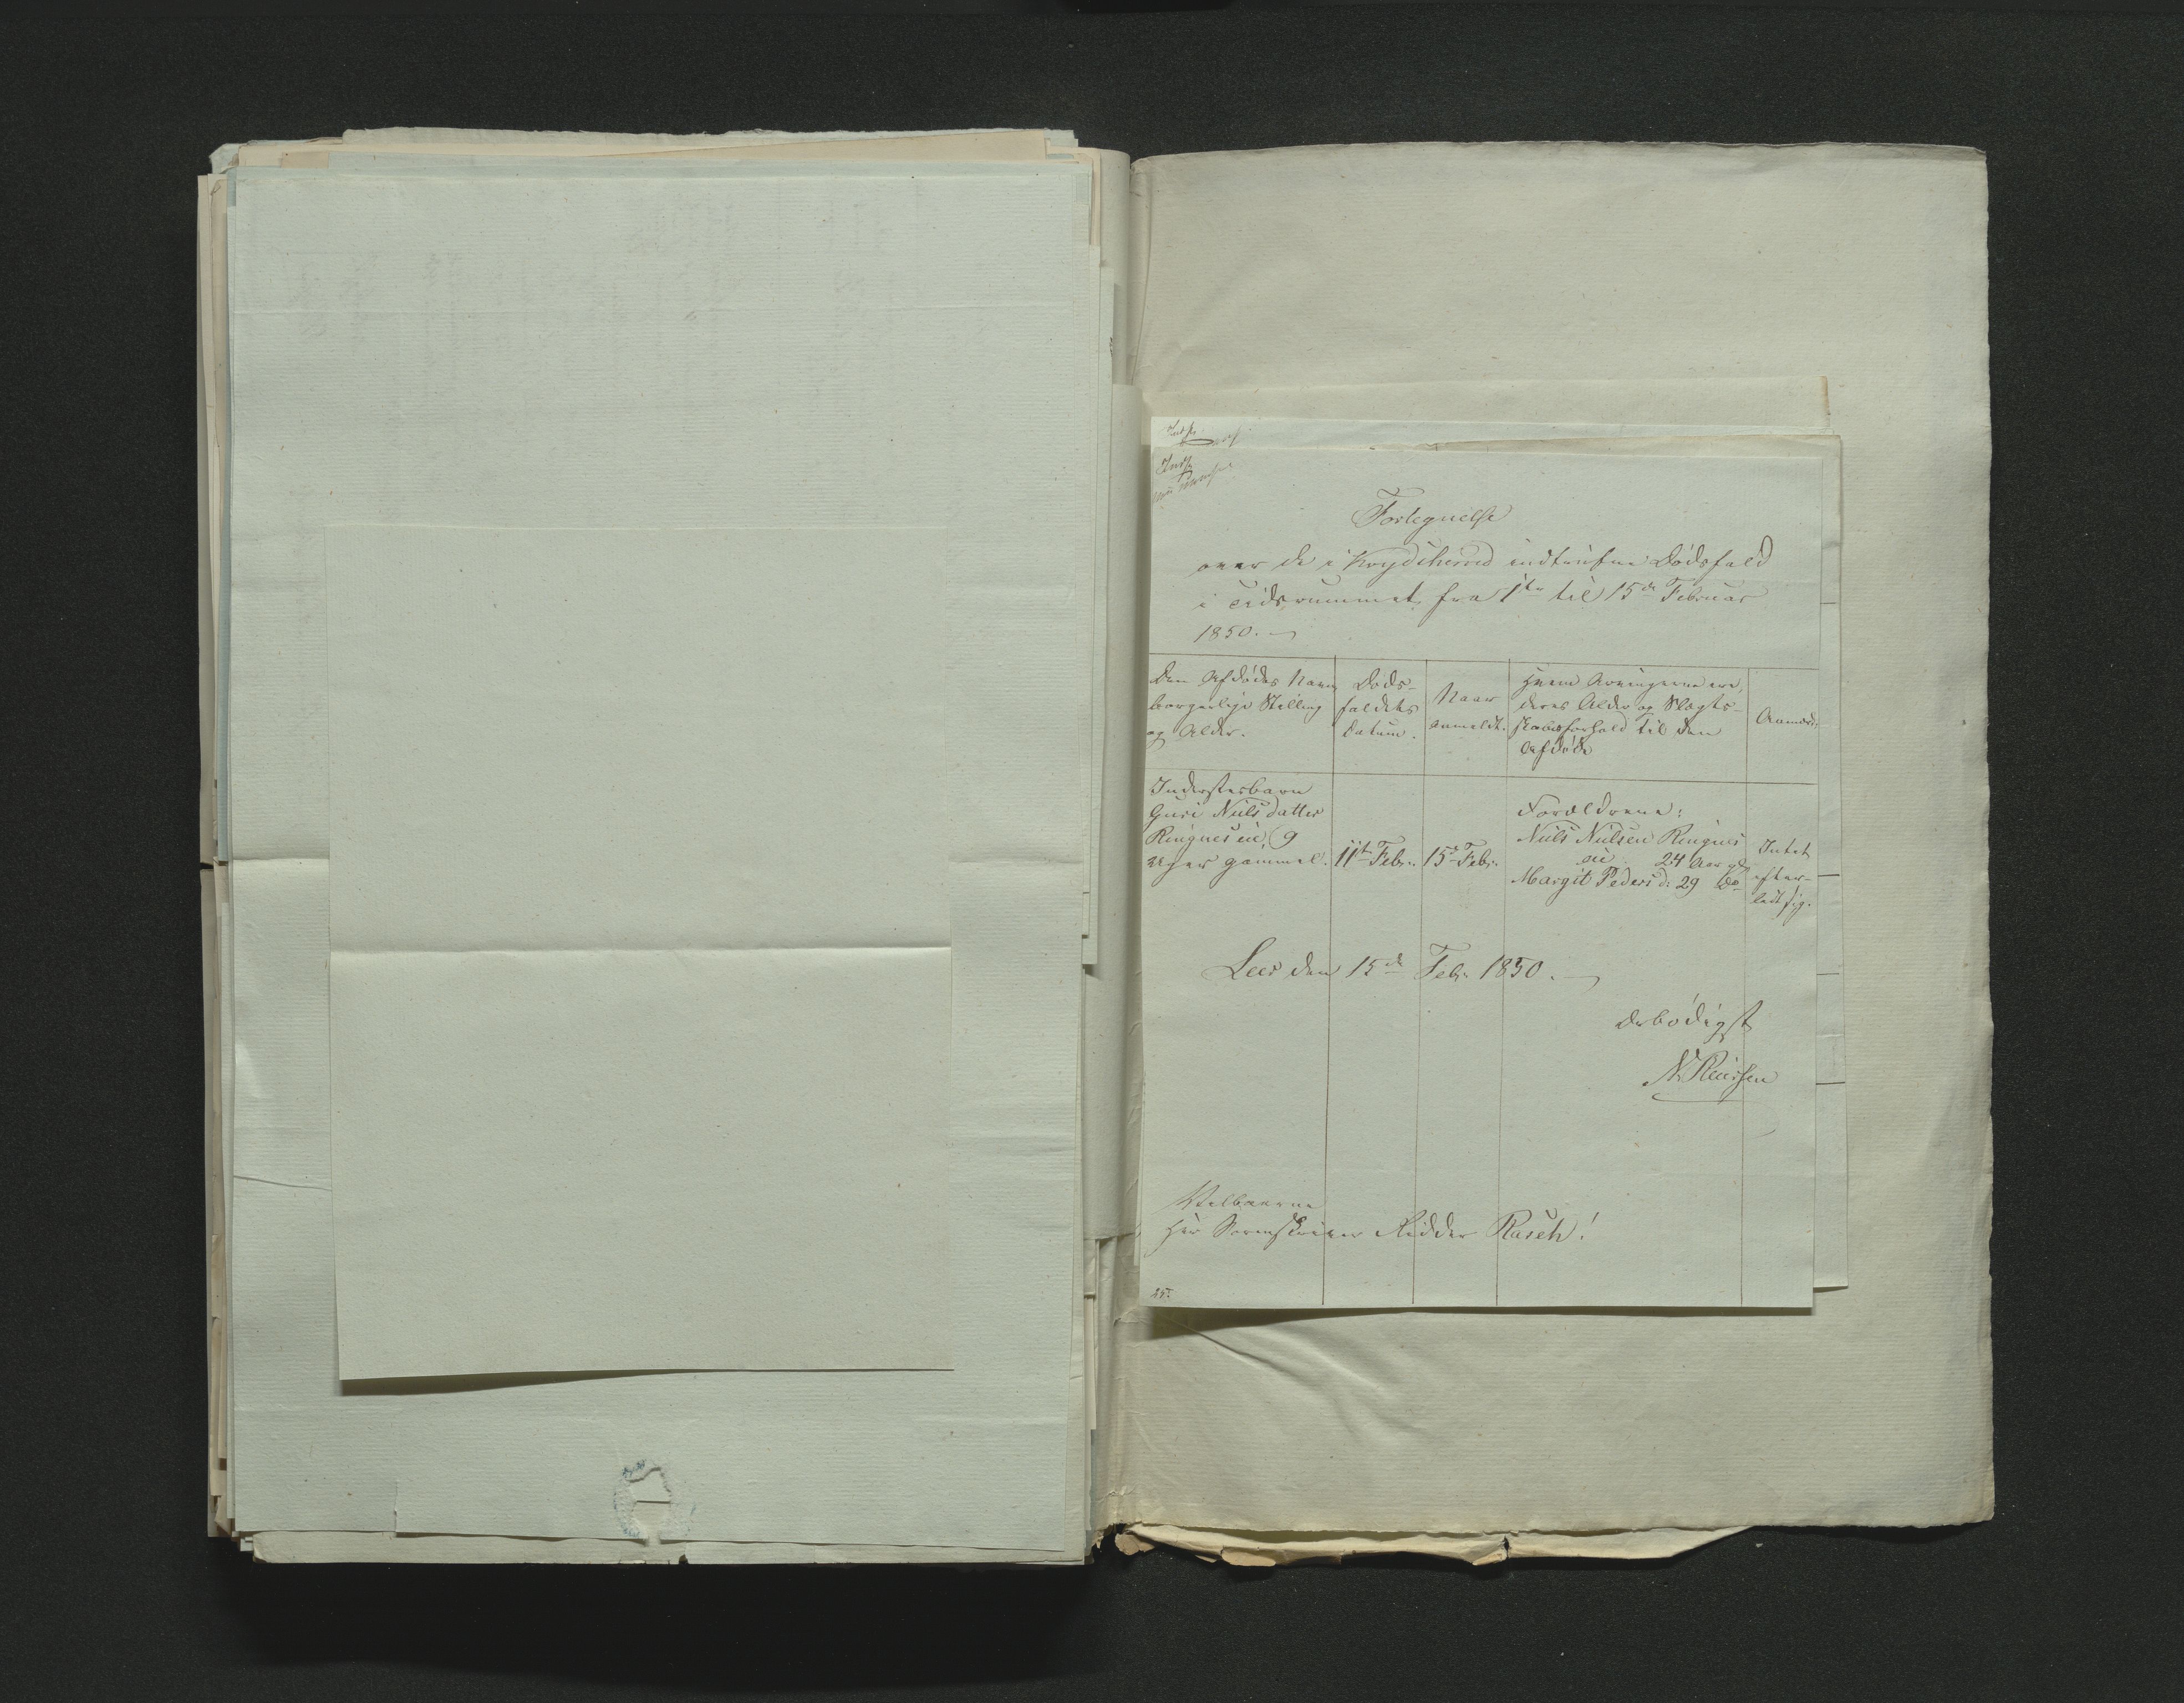 Indf.
Indf.
Fortegnelse
over de i Krydsherred indtrufne Dødsfald
i Tidsrummet fra 1ste til 15de Februar
1850.
Den Afdødes Navn
borgerlige Stilling
og Alder.
Døds-
faldets
Datum.
Naar
anmeldt.
Hvem Arvingerne ere,
deres Alder og Slægts-
skabsforhold til den
Afdøde
Anmærk.
Inderstebarn
Guri Nielsdatter
Ringneseie, 9
Uger gammel.
11te Febr.
15de Febr.
Forældrene:
Niels Nielsen Ringnes
eie 24 Aar gl
Margit Pedersd: 29 do
Intet
efter-
ladt sig.
Lees den 15de Febr. 1850.
Ærbødigst
N. Reiersen
Velbaarne
Hr Sorenskriver Ridder Rasch!